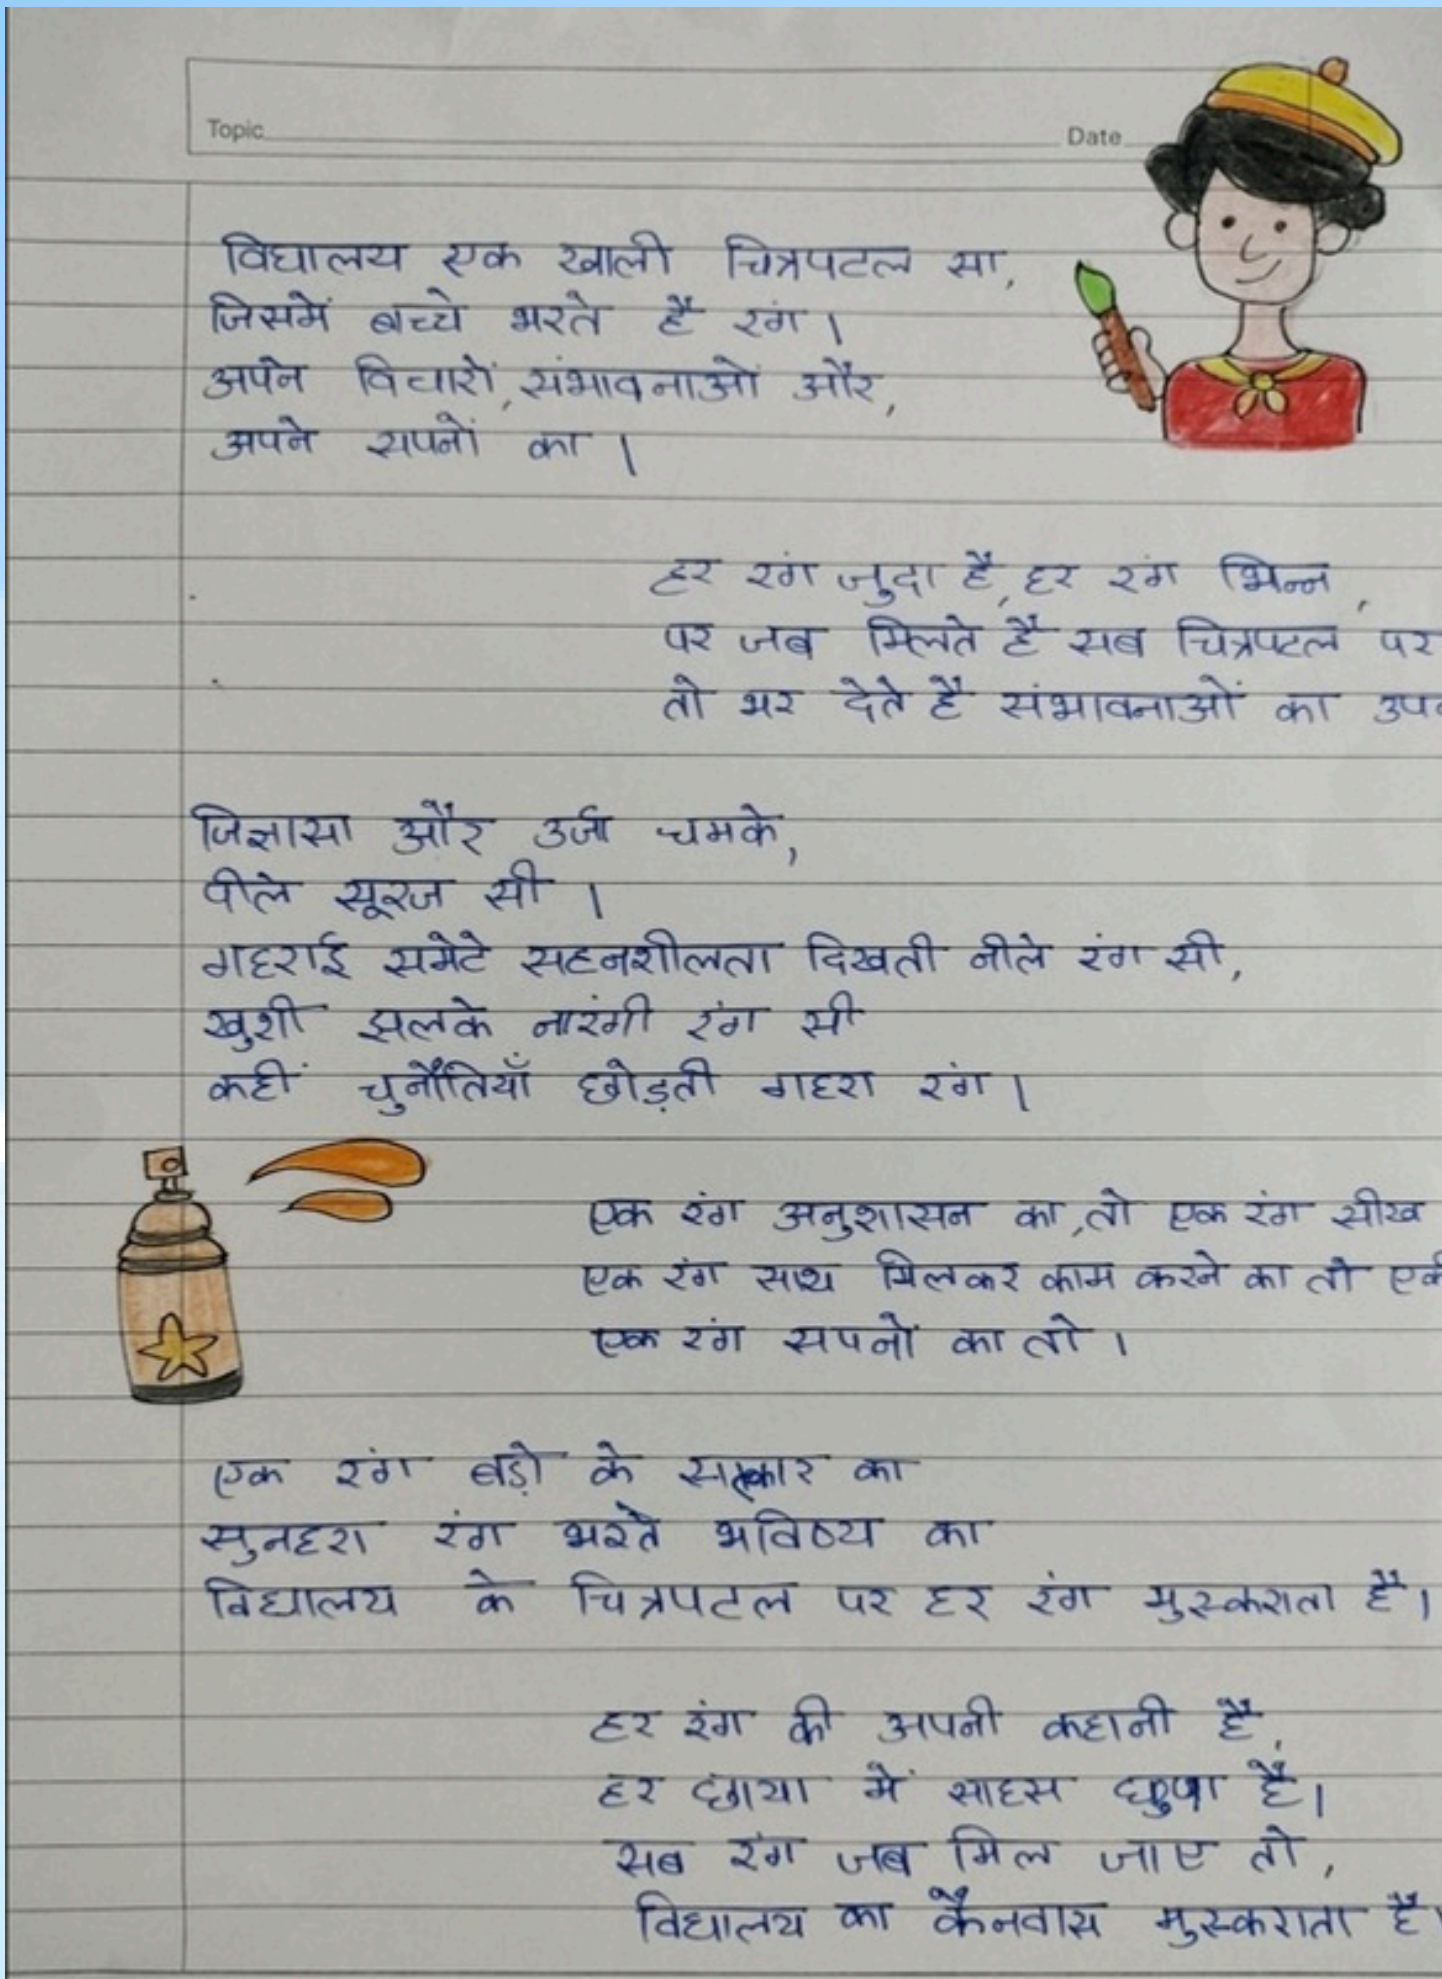 Topic
Date
विद्यालय एक खाली चित्रपटल सा,
जिसमें बच्चे भरते है रंग।
अपने विचारों, संभावनाओं और,
अपने सपनों का।
हर रंग जुदा है, हर रंग भिन्न,
पर जब मिलते है सब चित्रपटल पर
तो भर देते है संभावनाओं का
जिज्ञासा और उर्जा चमके,
पीले सूरज सी।
गहराई समेटे सहनशीलता दिखती नीले रंग सी,
खुशी झलके नारंगी रंग सी
कहीं चुनौतियाँ छोड़ती गहरा रंग।
एक रंग अनुशासन का, तो एक रंग सीख
एक रंग साथ मिलकर काम करने का तो
एक रंग सपनों का तो।
एक रंग बड़ो के सत्कार का
सुनहरा रंग भरते भविष्य का
विद्यालय के चित्रपटल पर हर रंग मुस्कराता है।
हर रंग की अपनी कहानी है,
हर छाया में साहस छुपा है।
सब रंग जब मिल जाए तो,
विद्यालय का कैनवास मुस्कराता है।